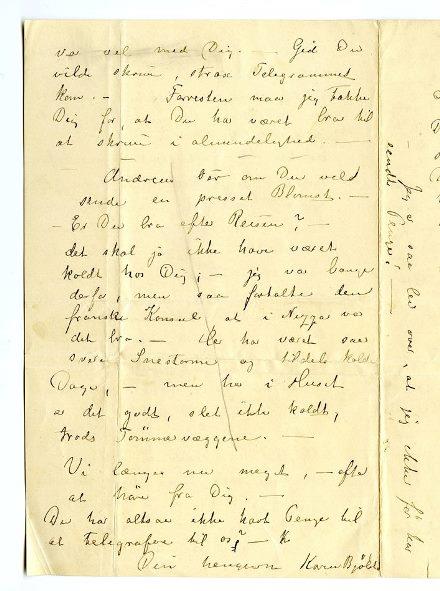 var vel med Dig. — Gid Du
vilde skrive, strax Telegrammet
kom. — Forresten maa jeg takke
Dig for, at Du har været bra til
at skrive i almindelighed. —
Andreas bør om Du vild
sende en presset Blomst. —
— Er Du bra efter Reisen? —
det skal jo ikke have været
koldt hos Dig; — jeg var bange
derfor, men saa fortalte den
franske Konsul at i Nizza var
det bra. — Her har været saa
svære Snestorme og tildels kolde
Dage, — men her i Huset
er det godt, slet ikke koldt,
trods Tømmervæggene. —
Vi længes nu meget, — efter
at høre fra Dig. —
Du har altsaa ikke havt Penge til
at telegrafere til os? —
Din hengivne Karen Bjøl
— Jeg er saa lei over, at jeg ikke før har
sendt Penge! —